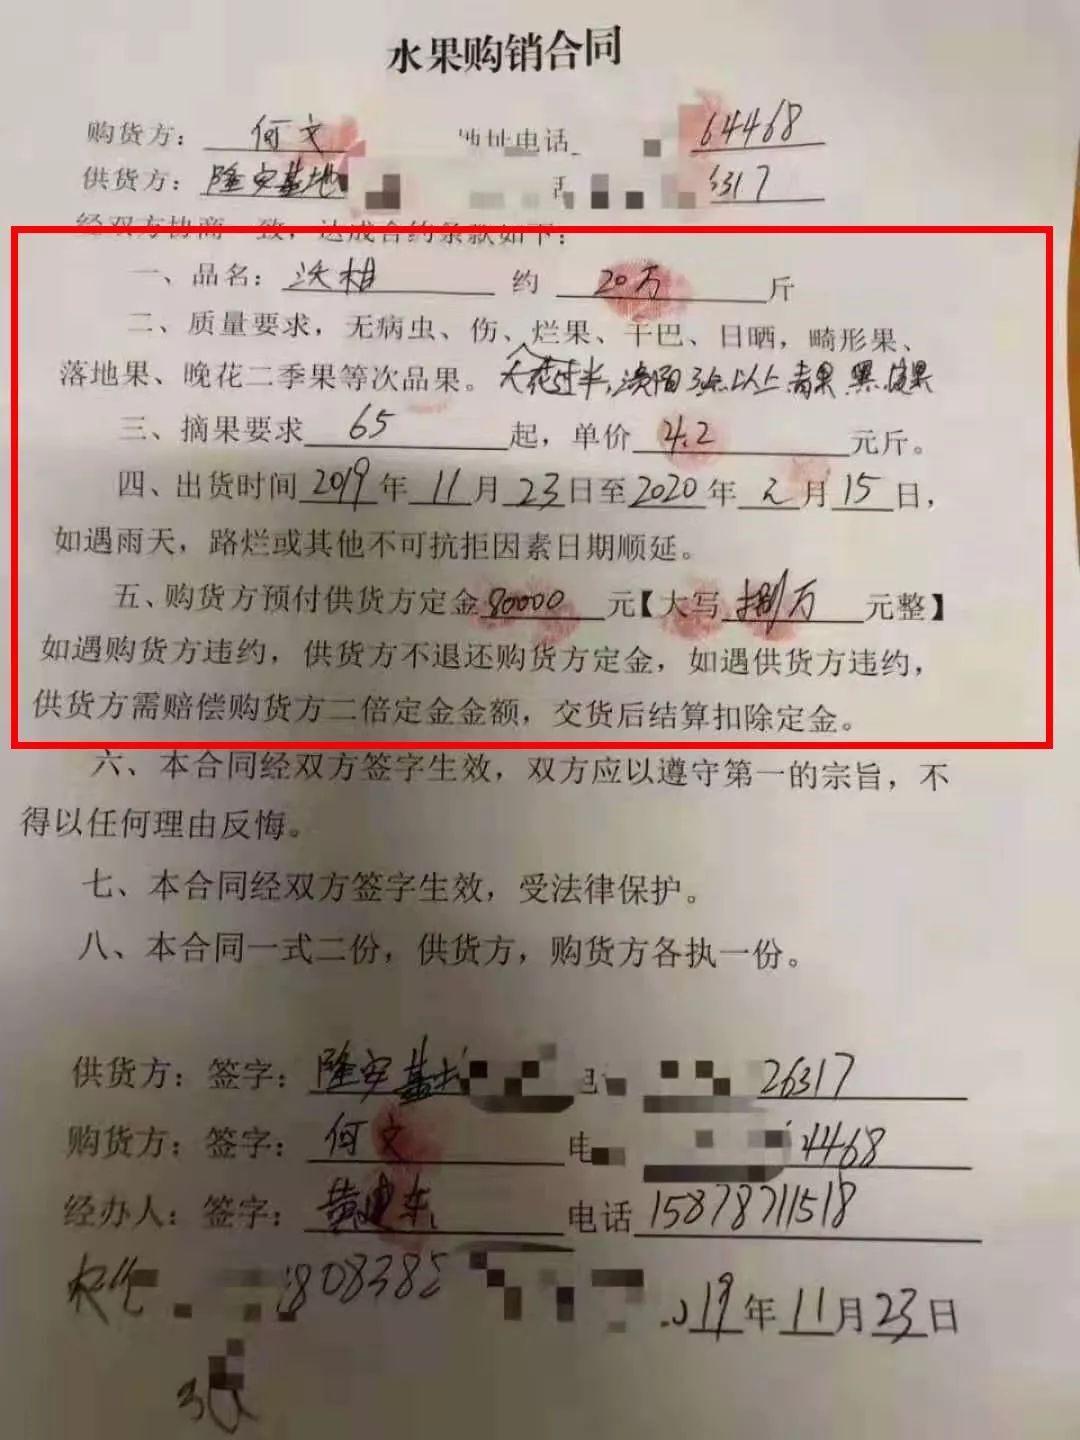 水果购销合同
购货方：何文 地址电话 64468
供货方：隆安基地 6317
经双方协商一致，达成合约条款如下：
一、品名：沃柑 约 20万 斤
二、质量要求，无病虫、伤、烂果、干巴、日晒，畸形果、
落地果、晚花二季果等次品果。 花过半， 以上 青果 黑 果
三、摘果要求 65 起，单价 4.2 元斤。
四、出货时间 2019 年 11 月 23 日至 2020 年 元 月 15 日，
如遇雨天，路烂或其他不可抗拒因素日期顺延。
五、购货方预付供货方定金 80000 元【大写 捌万 元整】
如遇购货方违约，供货方不退还购货方定金，如遇供货方违约，
供货方需赔偿购货方二倍定金金额，交货后结算扣除定金。
六、本合同经双方签字生效，双方应以遵守第一的宗旨，不
得以任何理由反悔。
七、本合同经双方签字生效，受法律保护。
八、本合同一式二份，供货方，购货方各执一份。
供货方：签字：隆安基地 26317
购货方：签字：何文 电 4468
经办人：签字：黄建东 电话 15878711518
808385
19 年 11 月 23 日